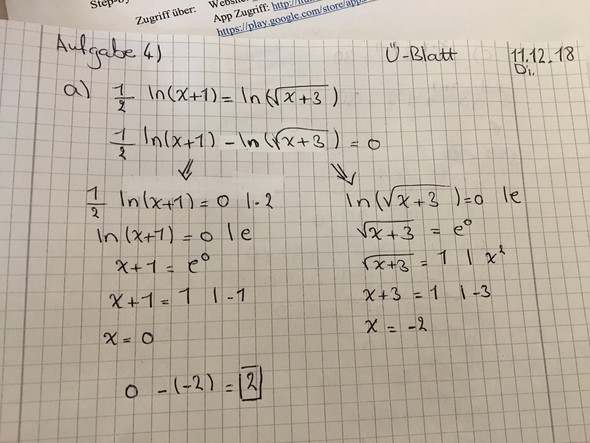 Zugriff über:
App Zugriff: http://
https://play.google.com/store/apps
Aufgabe 4)
Ü-Blatt
11.12.18
Di.
a) 1/2 ln(x+1) = ln(√x+3)
1/2 ln(x+1) - ln(√x+3) = 0
⇙ ⇘
1/2 ln(x+1) = 0 |·2
ln(x+1) = 0 | e
x+1 = e⁰
x+1 = 1 | -1
x = 0
ln(√x+3) = 0 | e
√x+3 = e⁰
√x+3 = 1 | x²
x+3 = 1 | -3
x = -2
0 - (-2) = 2